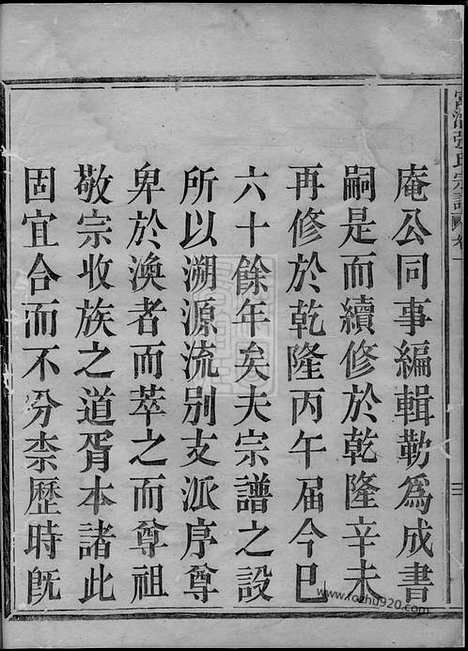 庵公同事編輯勒爲成書
嗣是而續修於乾隆辛未
再修於乾隆丙午届今巳
六十餘年矣夫宗譜之設
所以溯源流别支派序尊
卑於渙者而萃之而尊祖
敬宗收族之道胥本諸此
固宜合而不分柰歷時旣
張氏宗譜
www.jiazhu920.com